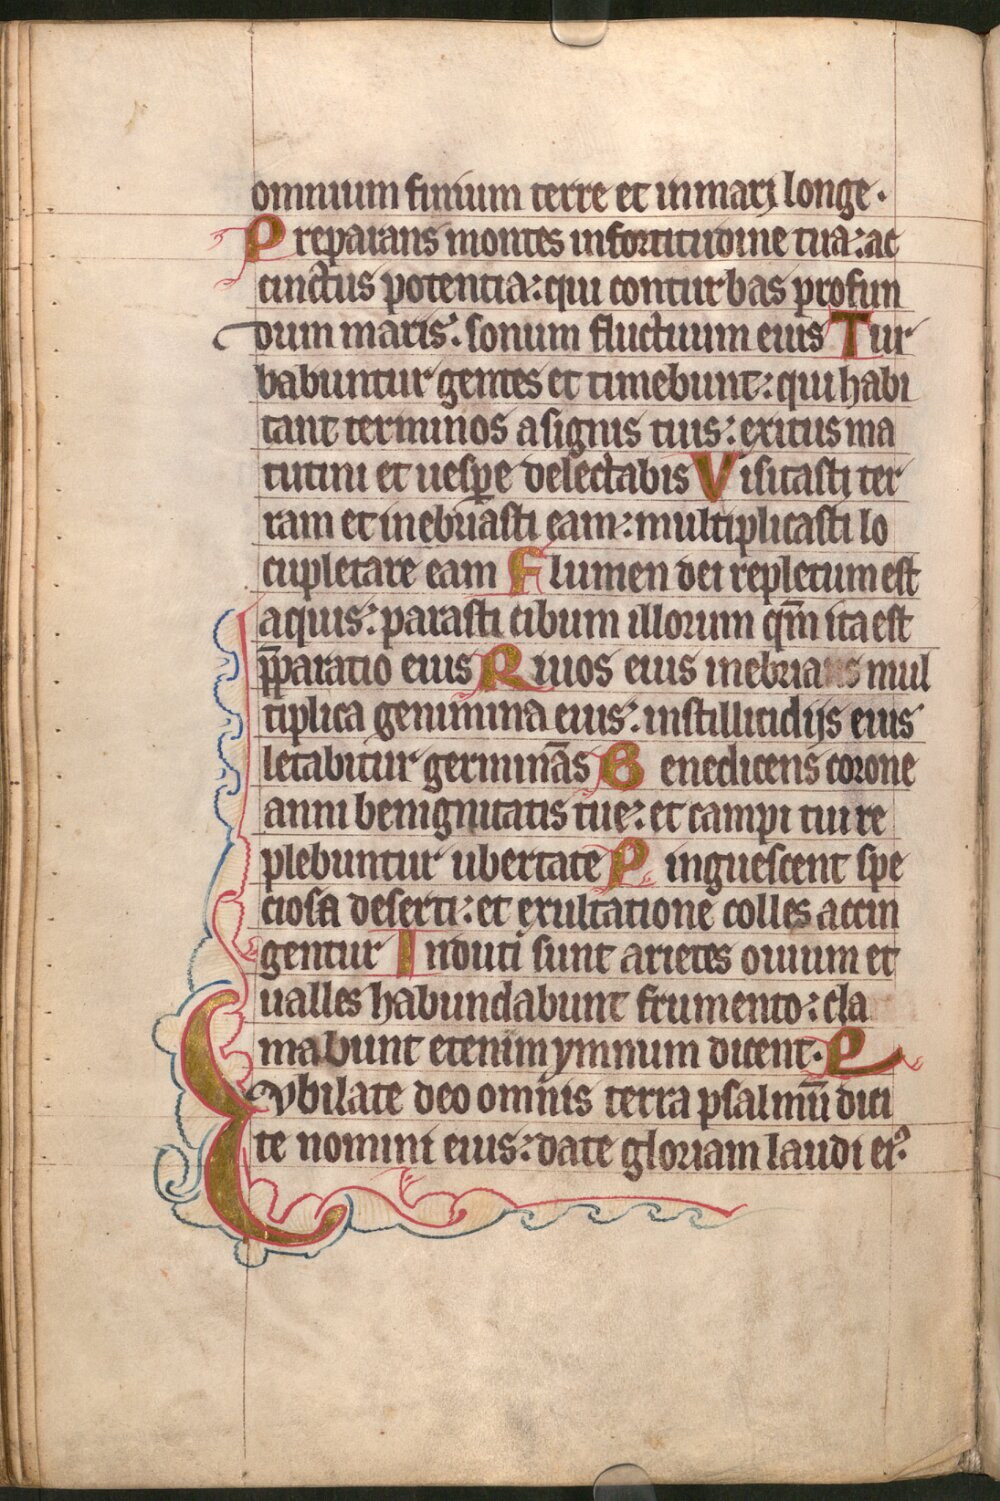 omnium finium terre et in mari longe.
Preparans montes in fortitudine tua: ac
cinctus potentia: qui conturbas profun
dum maris: sonum fluctuum eius Tur
babuntur gentes et timebunt: qui habi
tant terminos a signis tuis: exitus ma
tutini et uespe delectabis Visitasti ter
ram et inebriasti eam: multiplicasti lo
cupletare eam Flumen dei repletum est
aquis: parasti cibum illorum qm̄ ita est
p̄paratio eius Riuos eius inebrians mul
tiplica genimina eius: in stillicidijs eius
letabitur germinās Benedicens corone
anni benignitatis tue: et campi tui re
plebuntur ubertate Pinguescent spe
ciosa deserti: et exultatione colles accin
gentur Induti sunt arietes ouium et
ualles habundabunt frumento: cla
mabunt etenim ymnum dicent. P
Iubilate deo omnis terra psalmū dici
te nomini eius: date gloriam laudi ei⁹